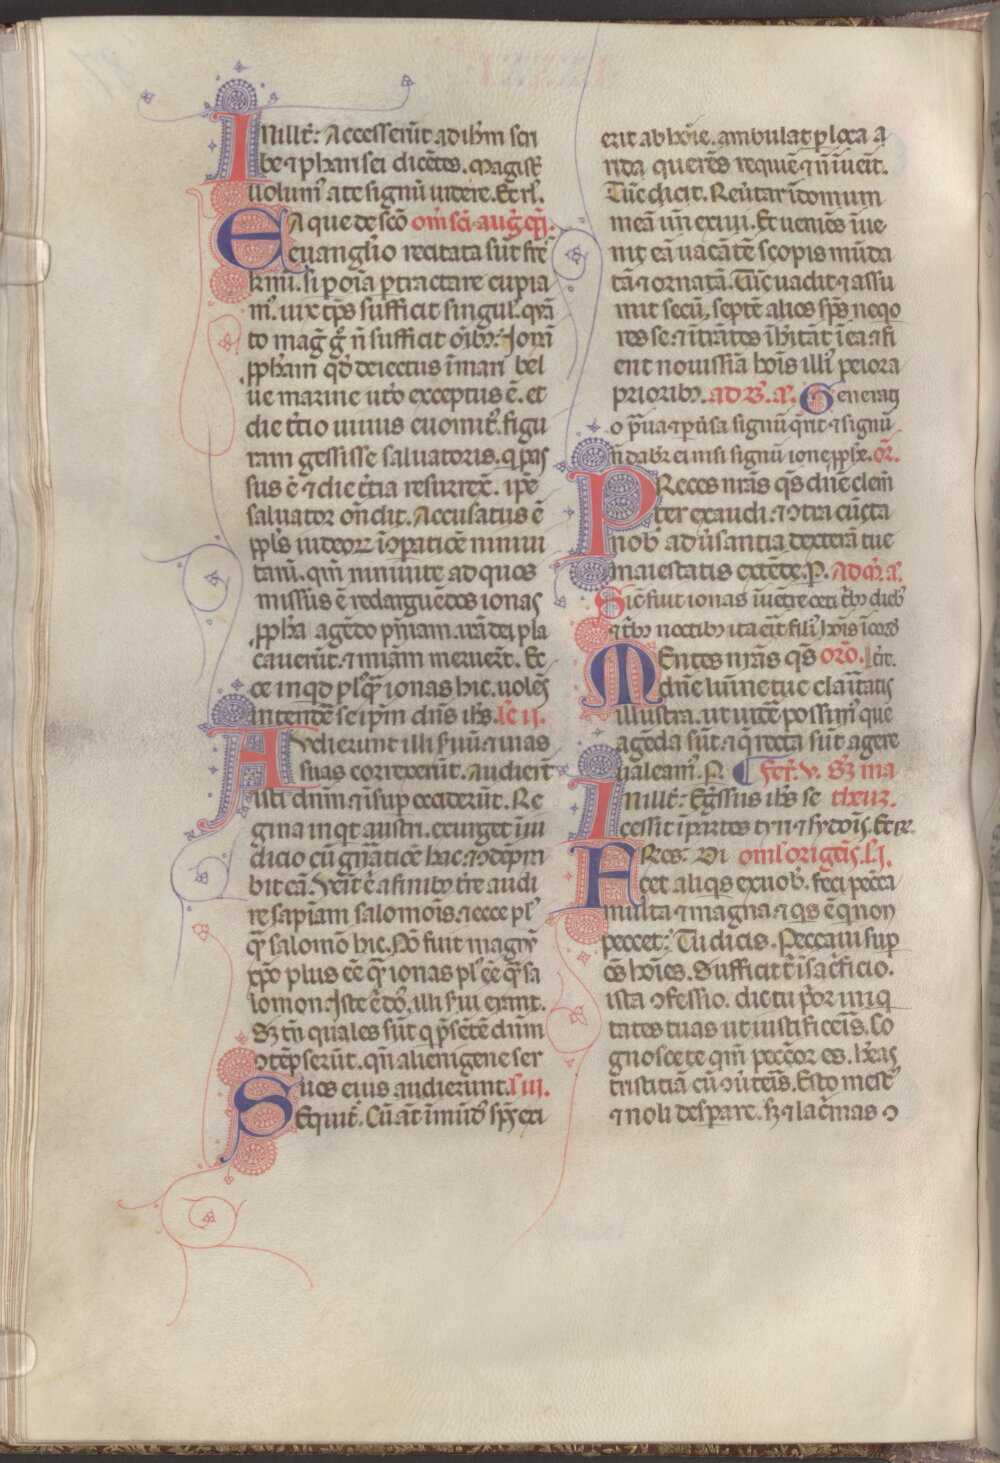 In illt̄: Accesserūt ad ihm̄ scri
be ⁊ pharisei dicētes. magist̄
volum᷒ a te signū videre. Et rl̄.
Ea que de scō om̄l sc̄i auḡ ep̄i.
euanglio recitata sūt frēs
km̄i. si p oīa ptractare cupia
m᷒. uix tp̄s sufficit singul᷒. qrā
to mag᷒ g̊ n̄ sufficit oīb᷒: Jonā
pp̄ham qd̄ deiectus i mari bel
ue marine utō exceptus ē. et
die t̄cio uiuus euomit᷒. figu
ram gessisse saluatoris. q pas
sus ē ⁊ die t̄cia resurrex̄. ip̄e
saluator on̄dit. Accusatus ē
ppl̄s iudeoꝝ ī ↄpaticōe niniui
taꝝ. qm̄ niniuite ad quos
missus ē redarguēdos ionas
pp̄ha agēdo pn̄iam. irā dei pla
cauerūt. ⁊ mīam meruert̄. Et
ecce inqd̄ pl᷒ qȝ ionas hic. uolēs
intendēe se ip̄m dn̄s ihs̄. lc̄ ii.
Audierunt illi suū ⁊ uias
suas correxerūt. audierūt
isti dnm̄ ⁊ īsup occiderūt. Re
gina inqt̄ austri. exurget i iu
dicio cū gn̄aticōe hac ⁊ ↄdēpn
bit eā. Venit ē a finib᷒ t̄re audi
re sapīam salomois. ⁊ ecce pl᷒
qȝ salomō hic. Nō fuit magnū
xp̄o plus eē qȝ ionas pl᷒ eē qȝ sa
lomon. Iste ē dō. illi sui erant.
Sȝ tn̄ quales sūt q p̄sētē dnm̄
ↄtēpserūt. qn̄ alienigene ser
uos eius audierunt. lc̄ iii.
Sequit᷒. Cū aūt īmūd᷒ sps̄ exi
erit ab hoīe. ambulat p loca a
rida querēs requiē ⁊ n̄ iuēit.
Tūc dicit. Reūtar ī domum
meā un̄ exiui. Et ueniēs iue
nit eā uacātē scopis mūda
tā ⁊ ornatā. Tūc uadit ⁊ assu
mit secū, septē alios sp̄s neqo
res se. ⁊ ītrātes īhitāt ī ea. ⁊ fi
ent nouissīa hoīs illi᷒ peiora
priorib᷒. ad B̄. ā. Generaci
o praua ⁊ pūsa signū q̄rit ⁊ signū
n̄ dabr̄ ei nisi signū ione pp̄he. or̄.
Preces nr̄as qs̄ dn̄e clem̄
ter exaudi. ⁊ ↄtra cūcta
nob᷒ aduersantia dexterā tue
maiestatis extēde. P. Ad m̄. ā.
Sic fuit ionas i uētre ceti trib᷒ dieb᷒
⁊ trib᷒ noctib᷒ ita erit fili᷒ hoīs ī cord̄
Mentes nr̄as qs̄ orō. tr̄e.
dn̄e lumīe tue claritatis
illustra. ut uidē possim᷒ que
agēda sūt ⁊ q recta sūt agere
ualeam᷒. P. Fer̄. v. Sȝ ma
In illt̄: Egssus ihs̄ se theuȝ.
cessit ī partes tyri ⁊ sydois. Et rē.
Res. Di oml̄ origeīs. L̄. I.
Fcet aliqs ex uob᷒. feci pecca
multa ⁊ magna. ⁊ qs ē q non
peccet: Tu dicis. Peccaui sup
oēs hoīes. Sufficit t̄ isacificio.
ista ↄfessio. dic tu prior iniq
tates tuas ut iustificeris. Co
gnosce te qm̄ peccor es. heas
tristitiā cū ↄuteris. Esto mest᷒
⁊ noli despare. sȝ ⁊ lacimas ↄ